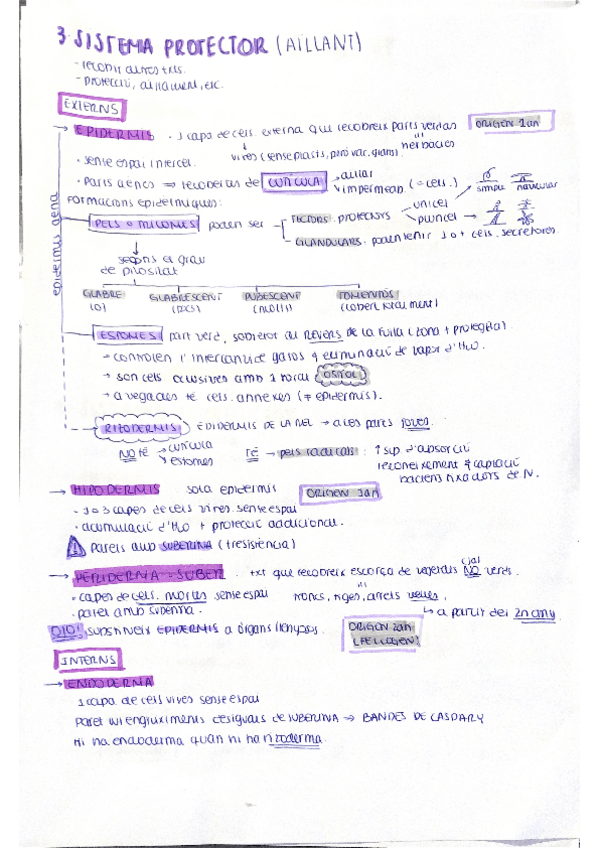 3. SISTEMA PROTECTOR (AÏLLANT)
- recobrir altres txts.
- protecció, aïllament, etc.
EXTERNS
→ EPIDERMIS · 1 capa de cels. externa que recobreix parts verdes ORIGEN 1ari
vives (sense plasts, però var. grans) herbàcies
· sense espai intercel.
· Parts aèries ⇒ recobertes de CUTÍCULA → aïllar
→ impermeab. (= cels.)
FORMACIONS EPIDÈRMIQUES:
epidermis aèria
PELS O TRICOMES poden ser - TECTORS: protectors unicel → simple
pluricel →
GLANDULARS: poden tenir 1 o + cels. secretores.
segons el grau
de pilositat
GLABRE GLABRESCENT PUBESCENT TOMENTÓS
(0) (pocs) (molts) (cobert totalment)
ESTOMES part verd, sobretot al REVERS de la fulla (zona + protegida).
→ controlen l'intercanvi de gasos i eliminació de vapor d'H2O.
→ són cels oclusives amb 1 forat OSTÍOL
→ a vegades té cels. annexes (≠ epidermis).
RIZODERMIS EPIDERMIS DE L'ARREL → a les parts joves.
NO té → cutícula
→ estomes
TÉ → pels radicals: ↑ sup. d'absorció
reconeixement i captació
bacteris fixadors de N.
→ HIPODERMIS sota epidermis ORIGEN 1ari
· 1 o 3 capes de cels vives sense espai
· acumulació d'H2O + protecció addicional.
! Parets amb SUBERINA (+ resistència)
→ PERIDERMA - SÚBER : txt que recobreix escorça de vegetals NO verds.
· capes de cels. mortes sense espai troncs, tiges, arrels velles.
· paret amb suberina. ↳ a partir del 2n any.
OJO! substitueix EPIDERMIS a òrgans llenyosos. ORIGEN 2ari
(FEL·LOGEN)
INTERNS
→ ENDODERMA
1 capa de cels vives sense espai
Paret té engruiximents desiguals de SUBERINA → BANDES DE CASPARY
Hi ha endoderma quan hi ha rizoderma.